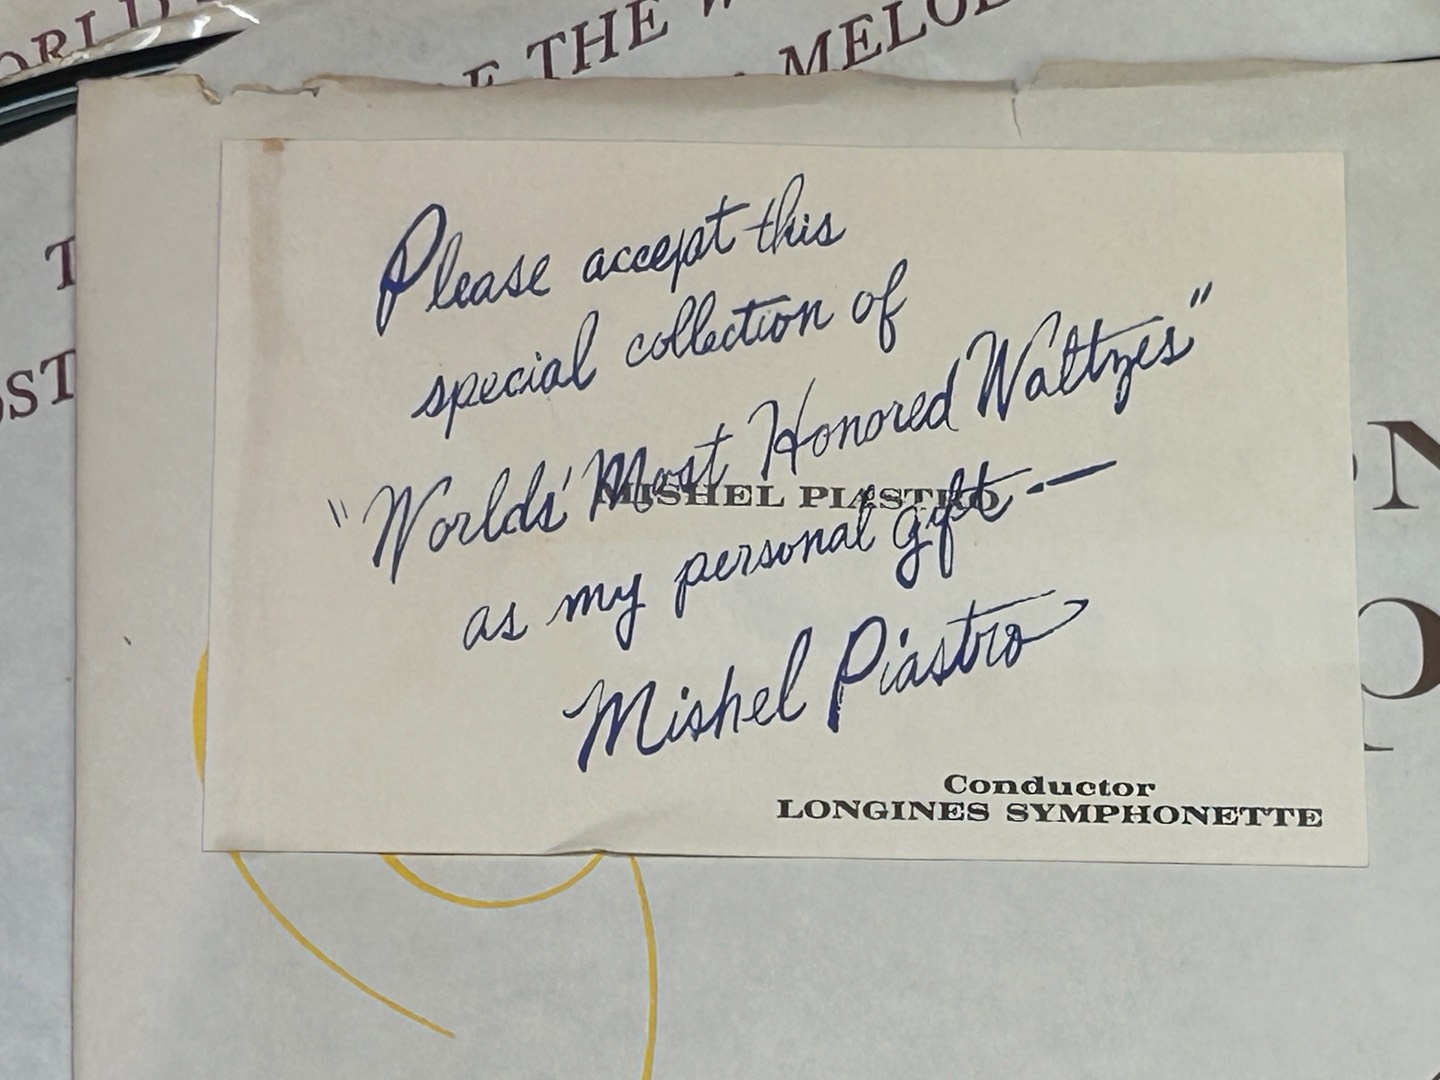 THE
MELO
Please accept this
special collection of
"Worlds' Most Honored Waltzes"
MISHEL PIASTRO
as my personal gift —
Mishel Piastro
Conductor
LONGINES SYMPHONETTE